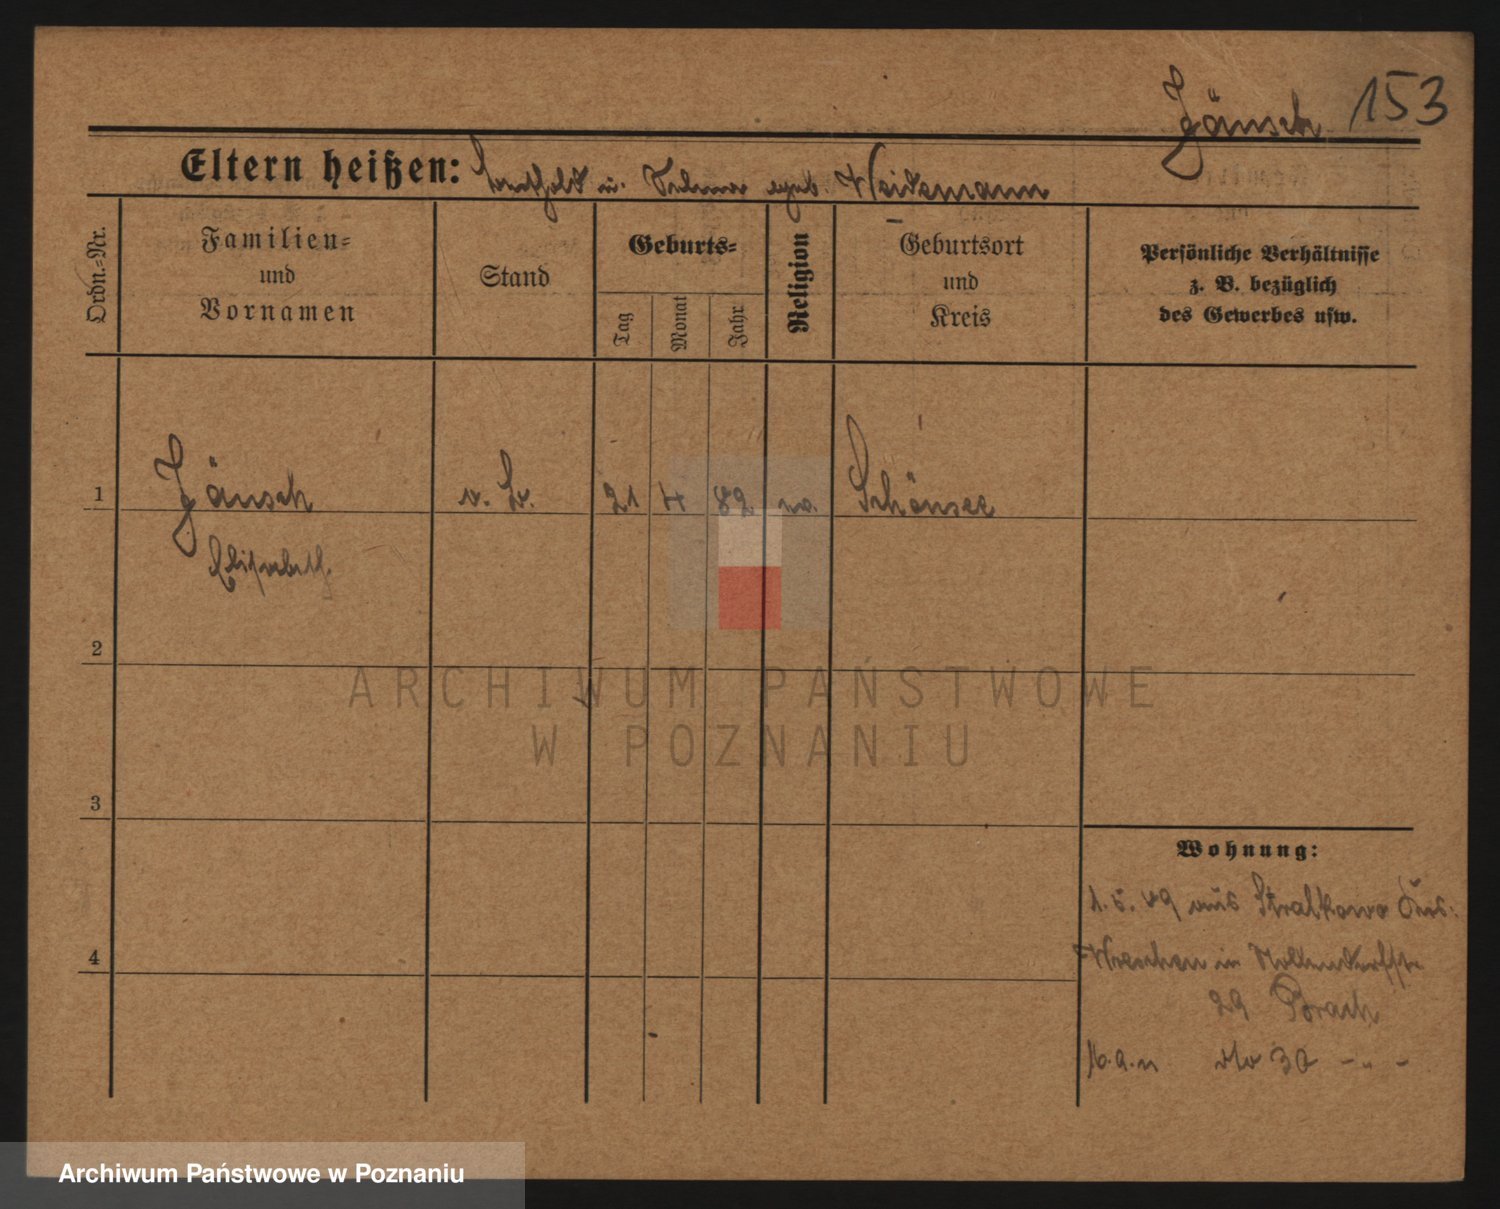 Jänsch 153
Eltern heißen: u. geb. Weidemann
Ordn.=Nr.
Familien=
und
Vornamen
Stand
Geburts=
Tag
Monat
Jahr
Religion
Geburtsort
und
Kreis
Persönliche Verhältnisse
z. B. bezüglich
des Gewerbes usw.
1 Jänsch 21 4 82 Schönsee
Elisabeth
2
3
4
Wohnung:
1. 5. 09 aus Stralkowo
Wreschen in Nollendorfstr.
29 Brach
dto 30 - „ -
ARCHIWUM PAŃSTWOWE
W POZNANIU
Archiwum Państwowe w Poznaniu